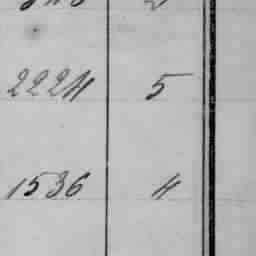 2224 5
1536 4